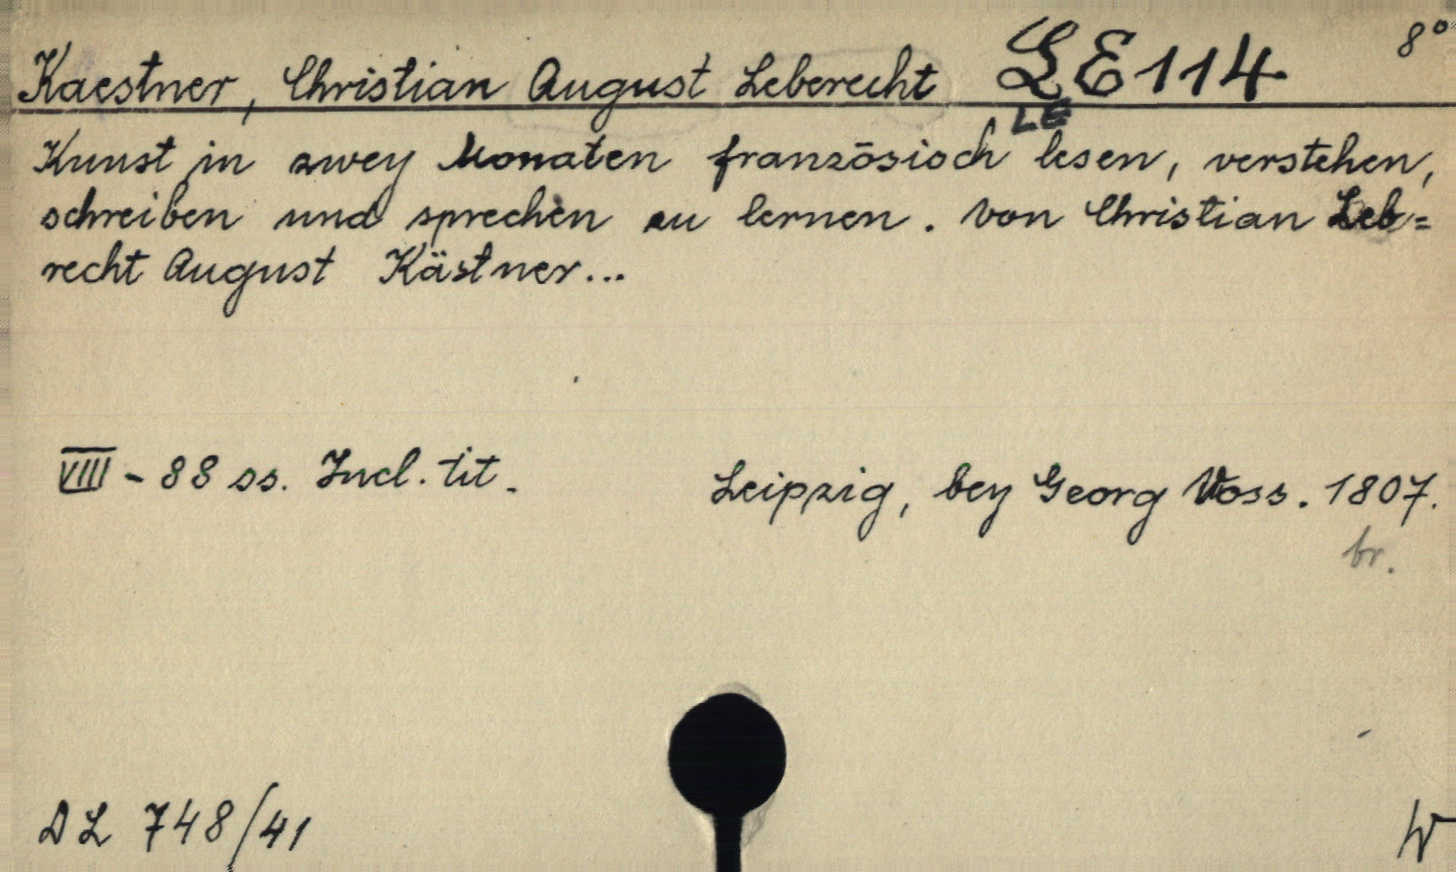 Kaestner, Christian August Leberecht LE 114 8°
LE
Kunst in zwey Monaten französisch lesen, verstehen,
schreiben und sprechen zu lernen. Von Christian Leb=
recht August Kästner...
VIII - 88 ss. Incl. tit.
Leipzig, bey Georg Voss. 1807.
br.
DL 748/41
W